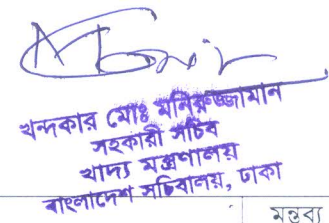 খন্দকার মোঃ মনিরুজ্জামান
সহকারী সচিব
খাদ্য মন্ত্রণালয়
বাংলাদেশ সচিবালয়, ঢাকা
মন্তব্য